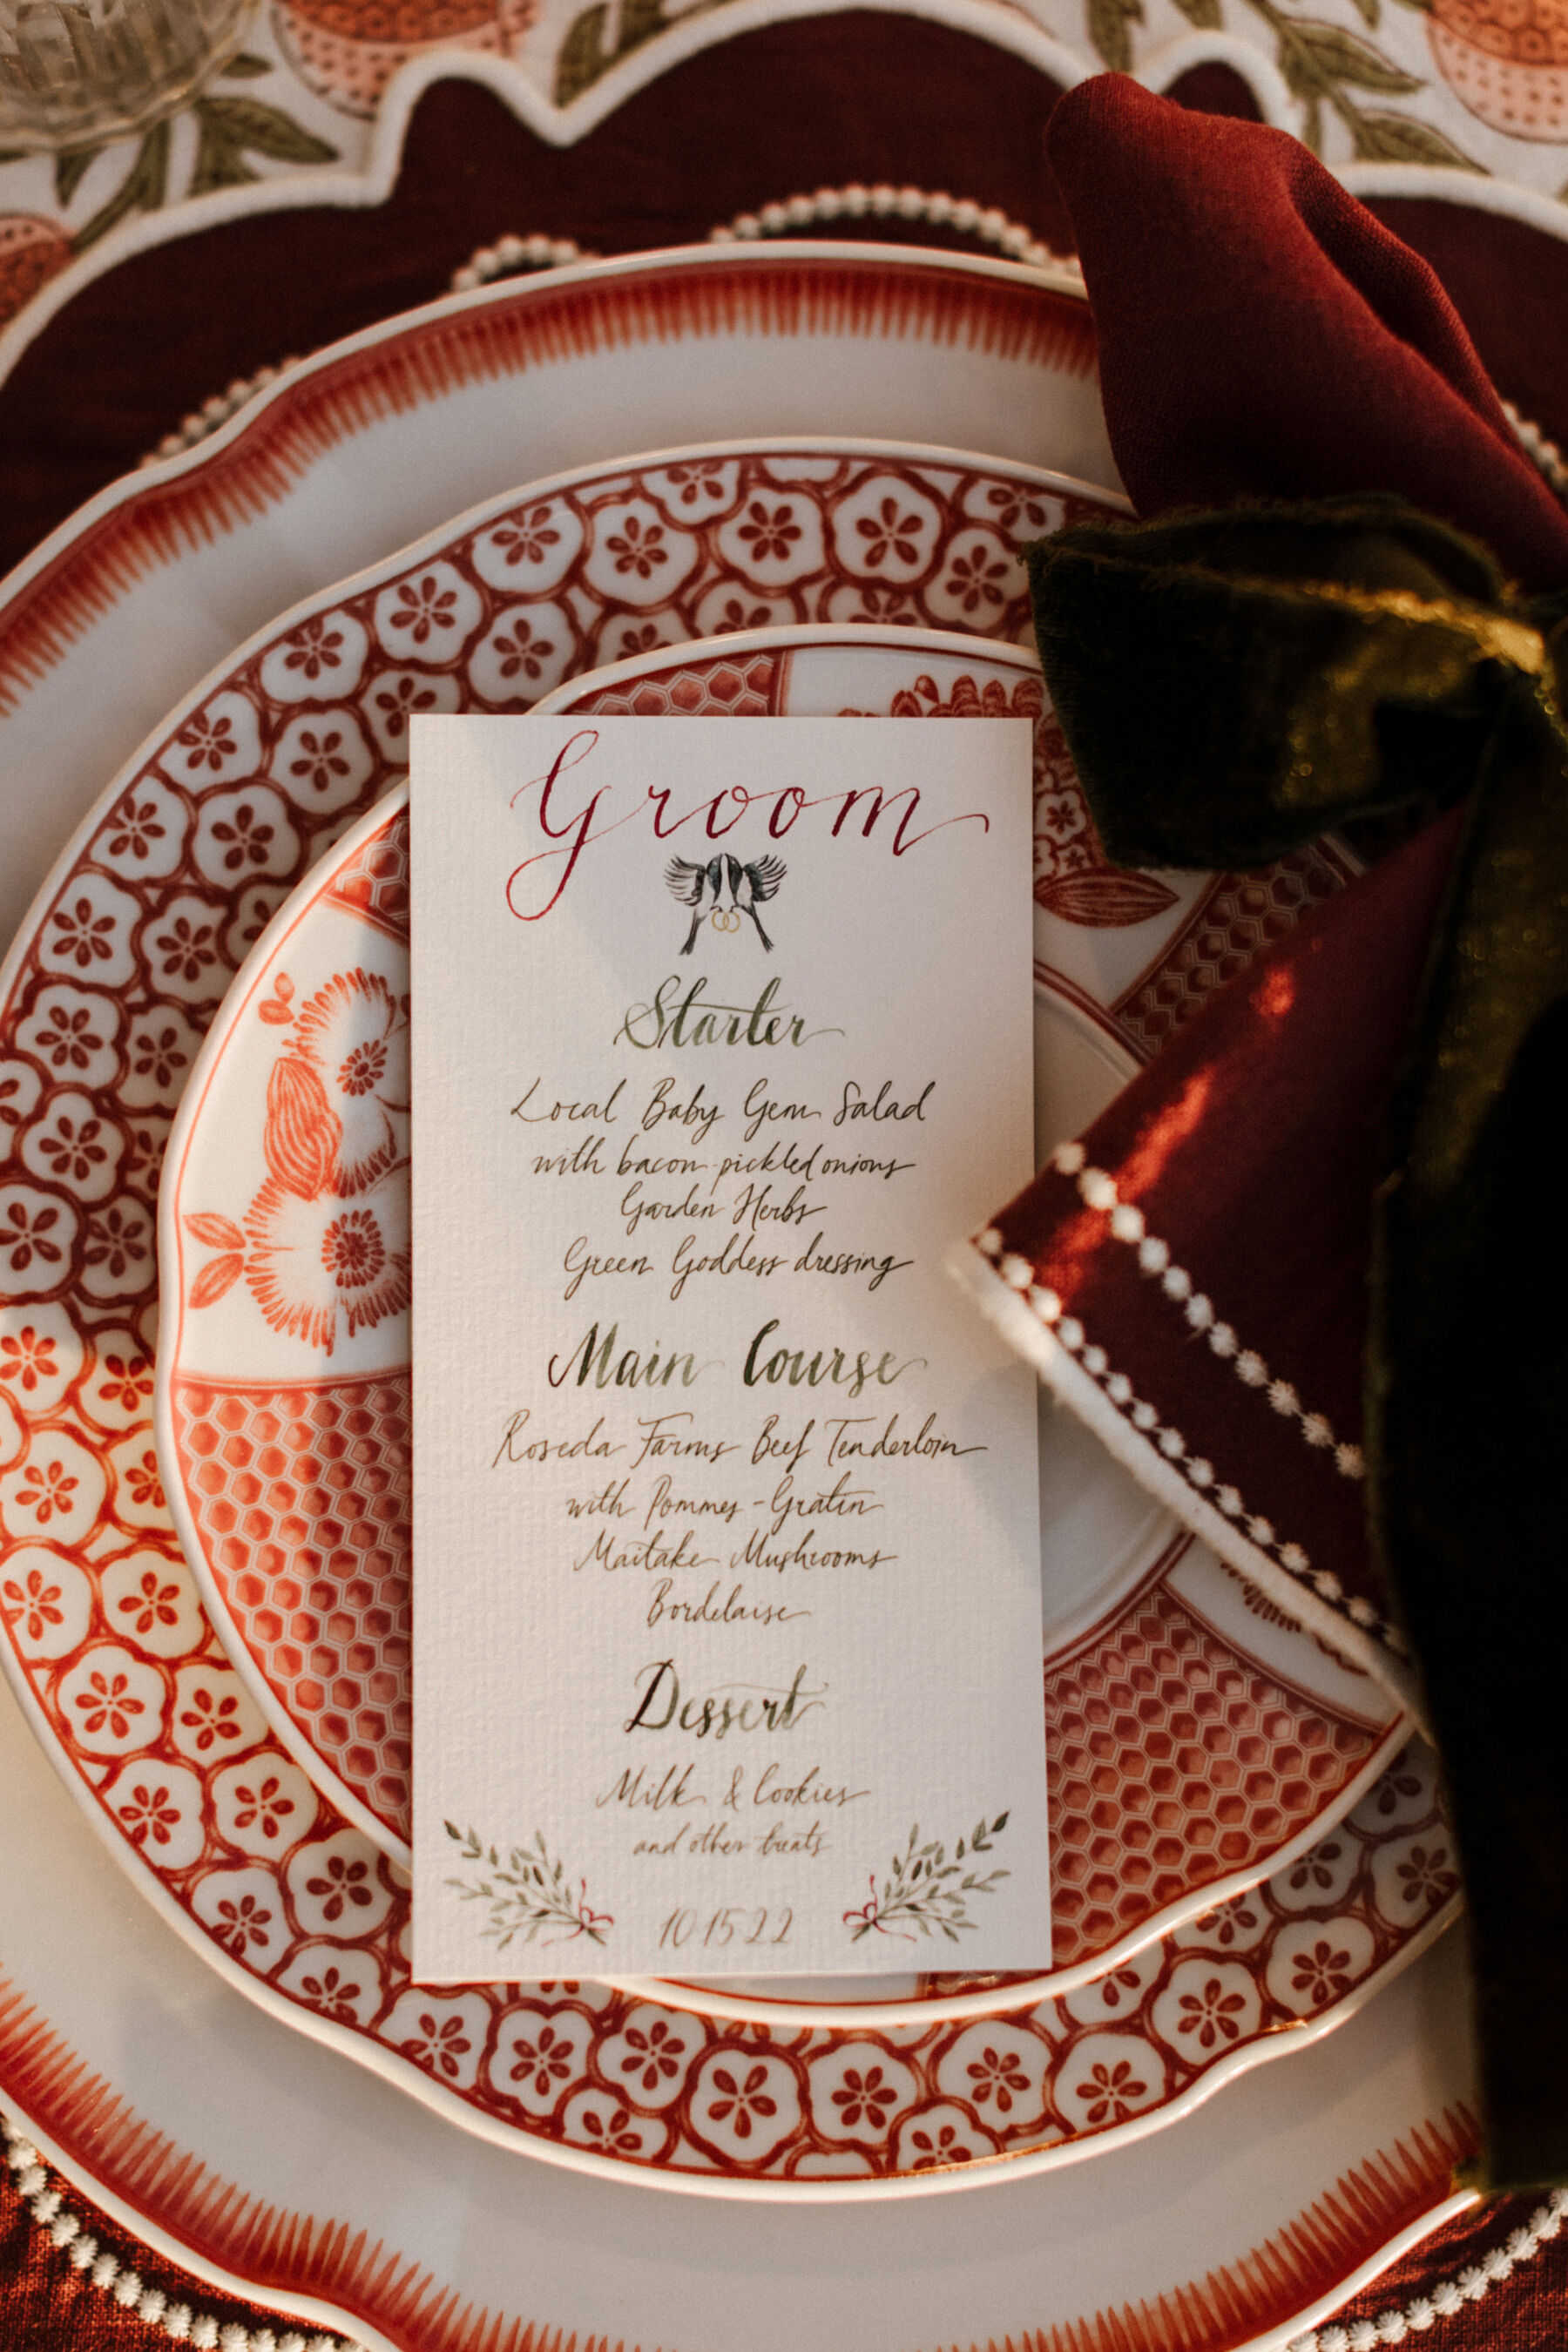 Groom
Starter
Local Baby Gem Salad
with bacon pickled onions
Garden Herbs
Green Goddess dressing
Main Course
Roseda Farms Beef Tenderloin
with Pommes-Gratin
Maitake Mushrooms
Bordelaise
Dessert
Milk & Cookies
and other treats
10 15 22